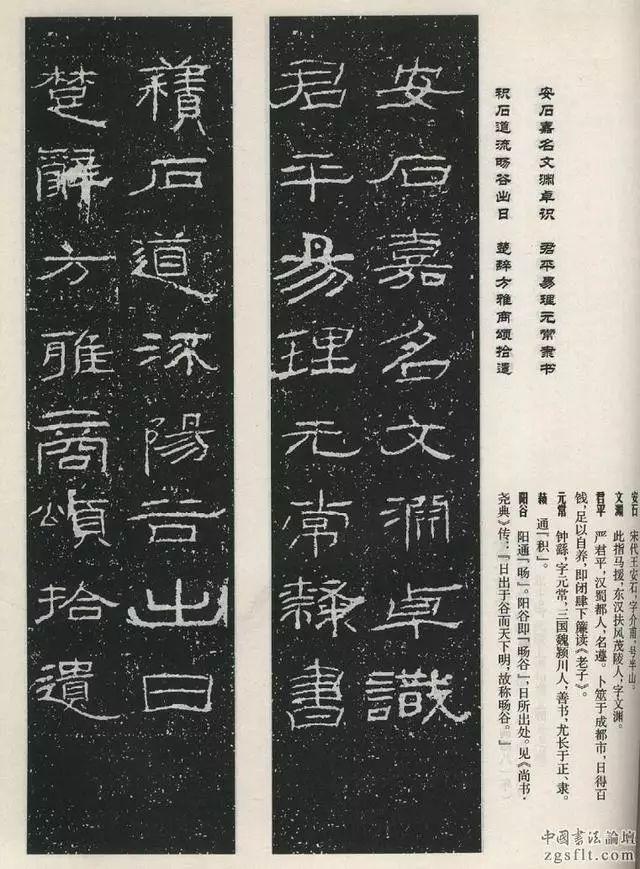 安石嘉名文渊卓识　君平易理元常隶书
积石道流旸谷出日　楚辞方雅商颂拾遗
安石　宋代王安石，字介甫，号半山
文渊　此指马援，东汉扶风茂陵人，字文渊。
君平　严君平，汉蜀都人，名遵。卜筮于成都市，日得百
钱，足以自养，即闭肆下簾读《老子》。
元常　钟繇，字元常，三国魏颍川人，善书，尤长于正、隶。
通『积』。
阳谷　阳通『旸』。阳谷即『旸谷』，日所出处。见《尚书·
尧典》传：『日出于谷而天下明，故称旸谷。』
安石嘉名文淵卓識
君平易理元常隸書
積石道流陽谷出日
楚辭方雅商頌拾遺
中國書法論壇
zgsflt.com